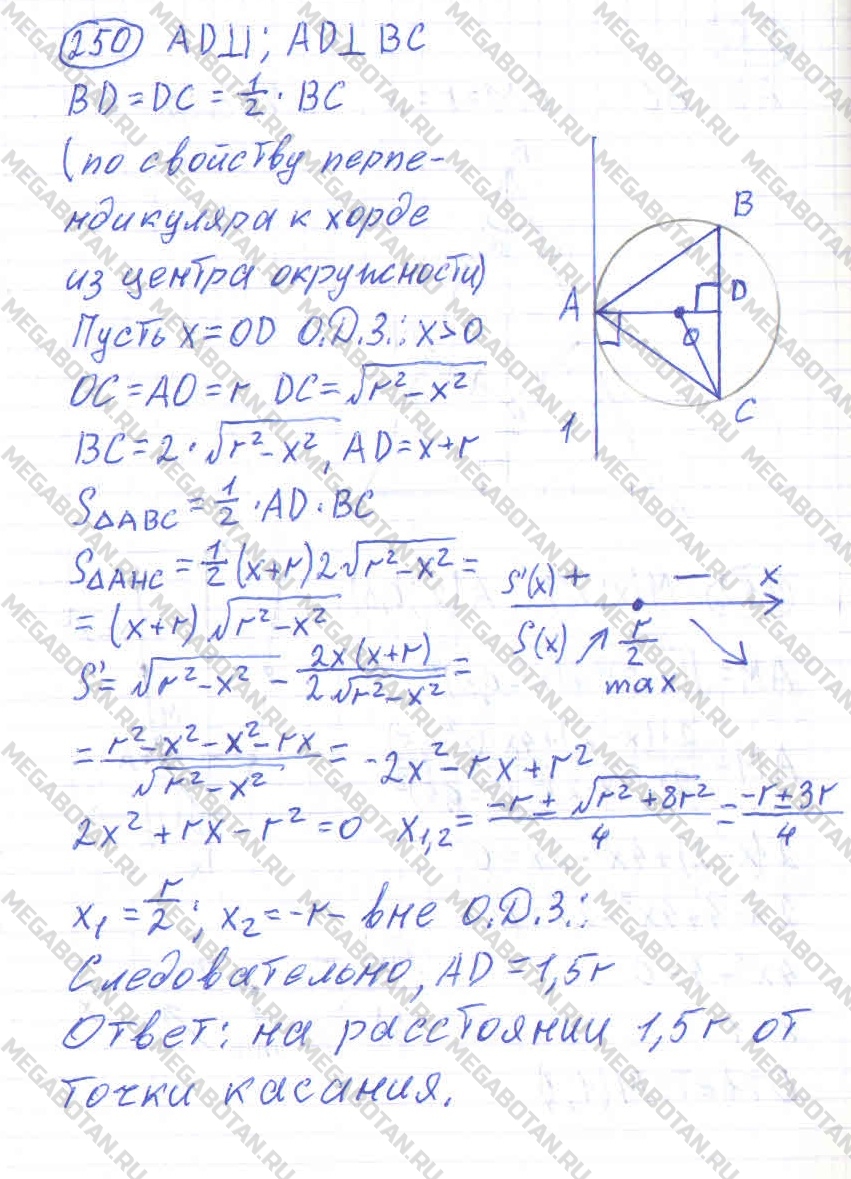 250 AD⊥l; AD⊥BC
BD=DC=1/2·BC
(по свойству перпе-
ндикуляра к хорде
из центра окружности)
Пусть x=OD О.Д.З.: x>0
OC=AO=r DC=√(r²-x²)
BC=2·√(r²-x²), AD=x+r
S△ABC=1/2·AD·BC
S△AHC=1/2(x+r)2√(r²-x²)=
=(x+r)√(r²-x²)
S'=√(r²-x²)-2x(x+r)/(2√(r²-x²))=
=(r²-x²-x²-rx)/√(r²-x²)=-2x²-rx+r²
2x²+rx-r²=0 x1,2=(-r±√(r²+8r²))/4=(-r±3r)/4
x1=r/2; x2=-r- вне О.Д.З.:
Следовательно, AD=1,5r
Ответ: на расстоянии 1,5r от
точки касания.
A
B
D
O
C
l
S'(x) + — x
S(x) ↗ r/2 ↘
max
MEGABOTAN.RU